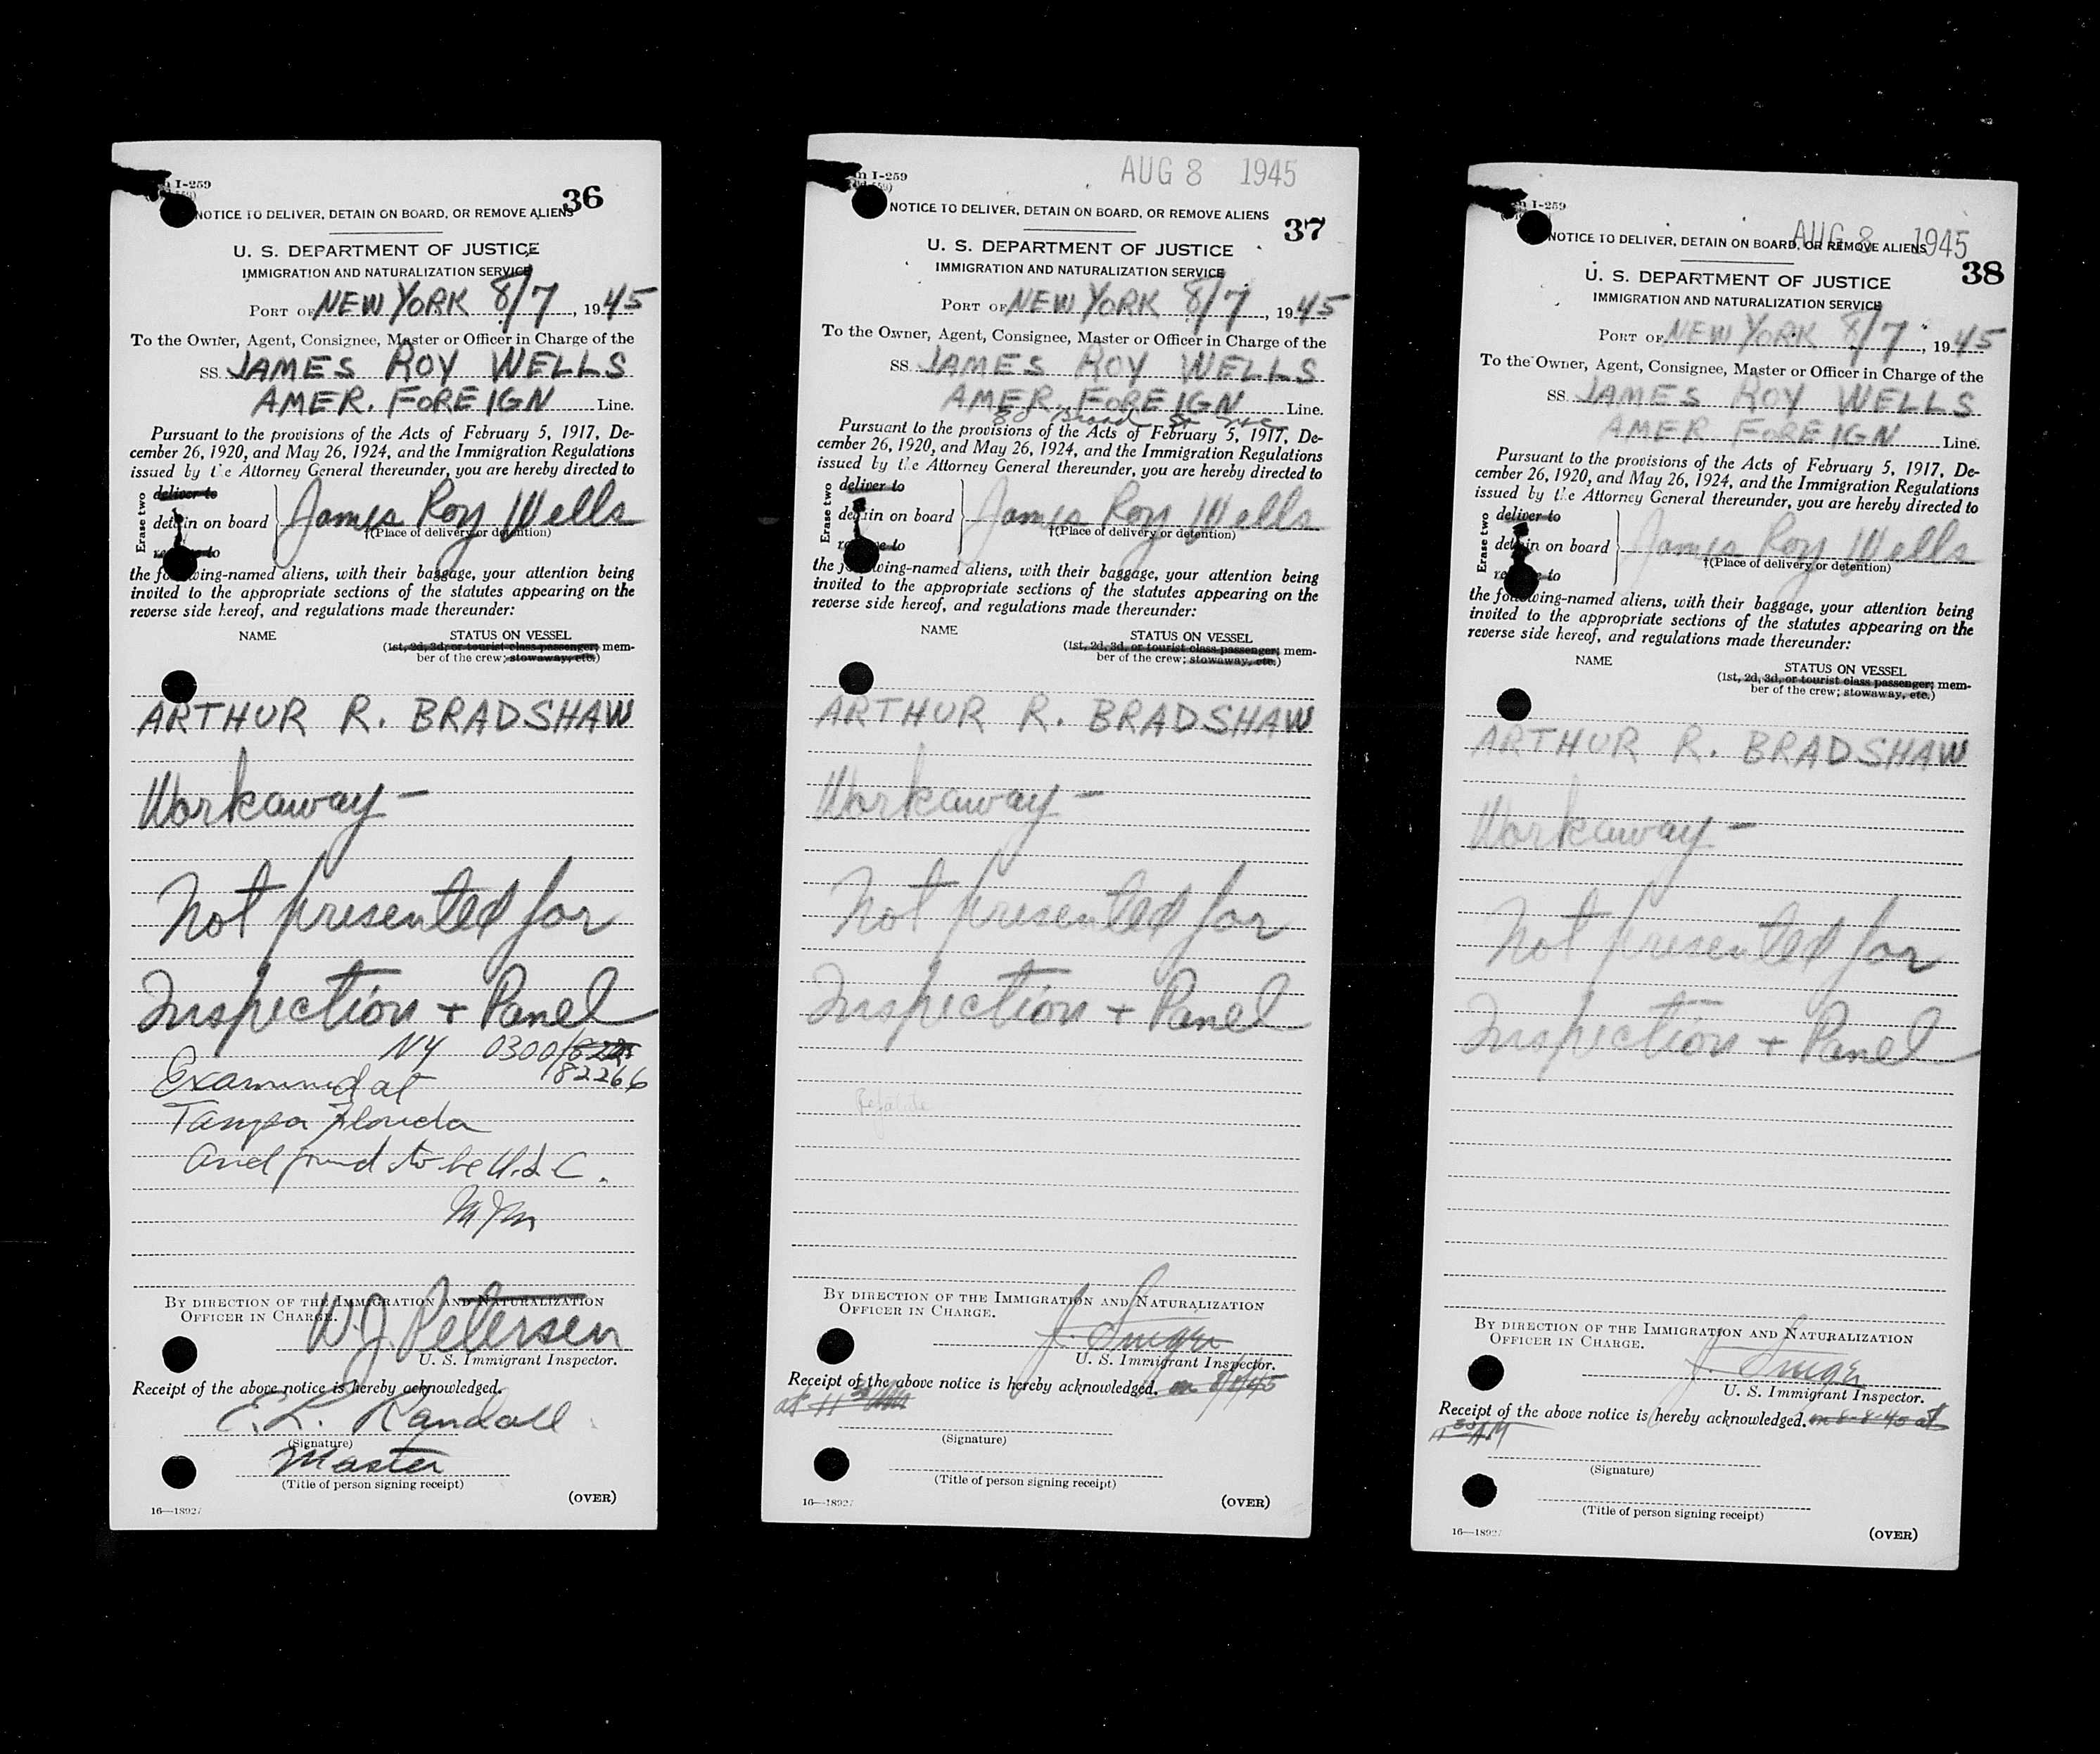 I-259
36
NOTICE TO DELIVER, DETAIN ON BOARD, OR REMOVE ALIENS
U. S. DEPARTMENT OF JUSTICE
IMMIGRATION AND NATURALIZATION SERVICE
PORT OF NEW YORK 8/7, 1945
To the Owner, Agent, Consignee, Master or Officer in Charge of the
SS. JAMES ROY WELLS
AMER. FOREIGN Line.
Pursuant to the provisions of the Acts of February 5, 1917, De-
cember 26, 1920, and May 26, 1924, and the Immigration Regulations
issued by the Attorney General thereunder, you are hereby directed to
Erase two
deliver to
detain on board
remove to
James Roy Wells
†(Place of delivery or detention)
the following-named aliens, with their baggage, your attention being
invited to the appropriate sections of the statutes appearing on the
reverse side hereof, and regulations made thereunder:
NAME
STATUS ON VESSEL
(1st, 2d, 3d, or tourist class passenger; mem-
ber of the crew; stowaway, etc.)
ARTHUR R. BRADSHAW
Workaway -
Not presented for
Inspection + Panel
NY 0300/
18226 6
Examined at
Tampa Florida
and found to be U.S.C.
MJM
BY DIRECTION OF THE IMMIGRATION AND NATURALIZATION
OFFICER IN CHARGE.
W.J. Petersen
U. S. Immigrant Inspector.
Receipt of the above notice is hereby acknowledged.
E.L. Randall
(Signature)
Master
(Title of person signing receipt)
16—18927
(OVER)
I-259
AUG 8 1945
NOTICE TO DELIVER, DETAIN ON BOARD, OR REMOVE ALIENS
37
U. S. DEPARTMENT OF JUSTICE
IMMIGRATION AND NATURALIZATION SERVICE
PORT OF NEW YORK 8/7, 1945
To the Owner, Agent, Consignee, Master or Officer in Charge of the
SS. JAMES ROY WELLS
AMER. FOREIGN Line.
80 Broad St NYC
Pursuant to the provisions of the Acts of February 5, 1917, De-
cember 26, 1920, and May 26, 1924, and the Immigration Regulations
issued by the Attorney General thereunder, you are hereby directed to
Erase two
deliver to
detain on board
remove to
James Roy Wells
†(Place of delivery or detention)
the following-named aliens, with their baggage, your attention being
invited to the appropriate sections of the statutes appearing on the
reverse side hereof, and regulations made thereunder:
NAME
STATUS ON VESSEL
(1st, 2d, 3d, or tourist class passenger; mem-
ber of the crew; stowaway, etc.)
ARTHUR R. BRADSHAW
Workaway -
Not presented for
Inspection + Panel
BY DIRECTION OF THE IMMIGRATION AND NATURALIZATION
OFFICER IN CHARGE.
U. S. Immigrant Inspector.
Receipt of the above notice is hereby acknowledged. on 8/8/45
at 11 30 AM
(Signature)
(Title of person signing receipt)
16—18927
(OVER)
I-259
AUG 8 1945
NOTICE TO DELIVER, DETAIN ON BOARD, OR REMOVE ALIENS
38
U. S. DEPARTMENT OF JUSTICE
IMMIGRATION AND NATURALIZATION SERVICE
PORT OF NEW YORK 8/7, 1945
To the Owner, Agent, Consignee, Master or Officer in Charge of the
SS. JAMES ROY WELLS
AMER FOREIGN Line.
Pursuant to the provisions of the Acts of February 5, 1917, De-
cember 26, 1920, and May 26, 1924, and the Immigration Regulations
issued by the Attorney General thereunder, you are hereby directed to
Erase two
deliver to
detain on board
remove to
James Roy Wells
†(Place of delivery or detention)
the following-named aliens, with their baggage, your attention being
invited to the appropriate sections of the statutes appearing on the
reverse side hereof, and regulations made thereunder:
NAME
STATUS ON VESSEL
(1st, 2d, 3d, or tourist class passenger; mem-
ber of the crew; stowaway, etc.)
ARTHUR R. BRADSHAW
Workaway -
Not presented for
Inspection + Panel
BY DIRECTION OF THE IMMIGRATION AND NATURALIZATION
OFFICER IN CHARGE.
U. S. Immigrant Inspector.
Receipt of the above notice is hereby acknowledged. on 8-8-45 at
11 30 AM
(Signature)
(Title of person signing receipt)
16—18927
(OVER)